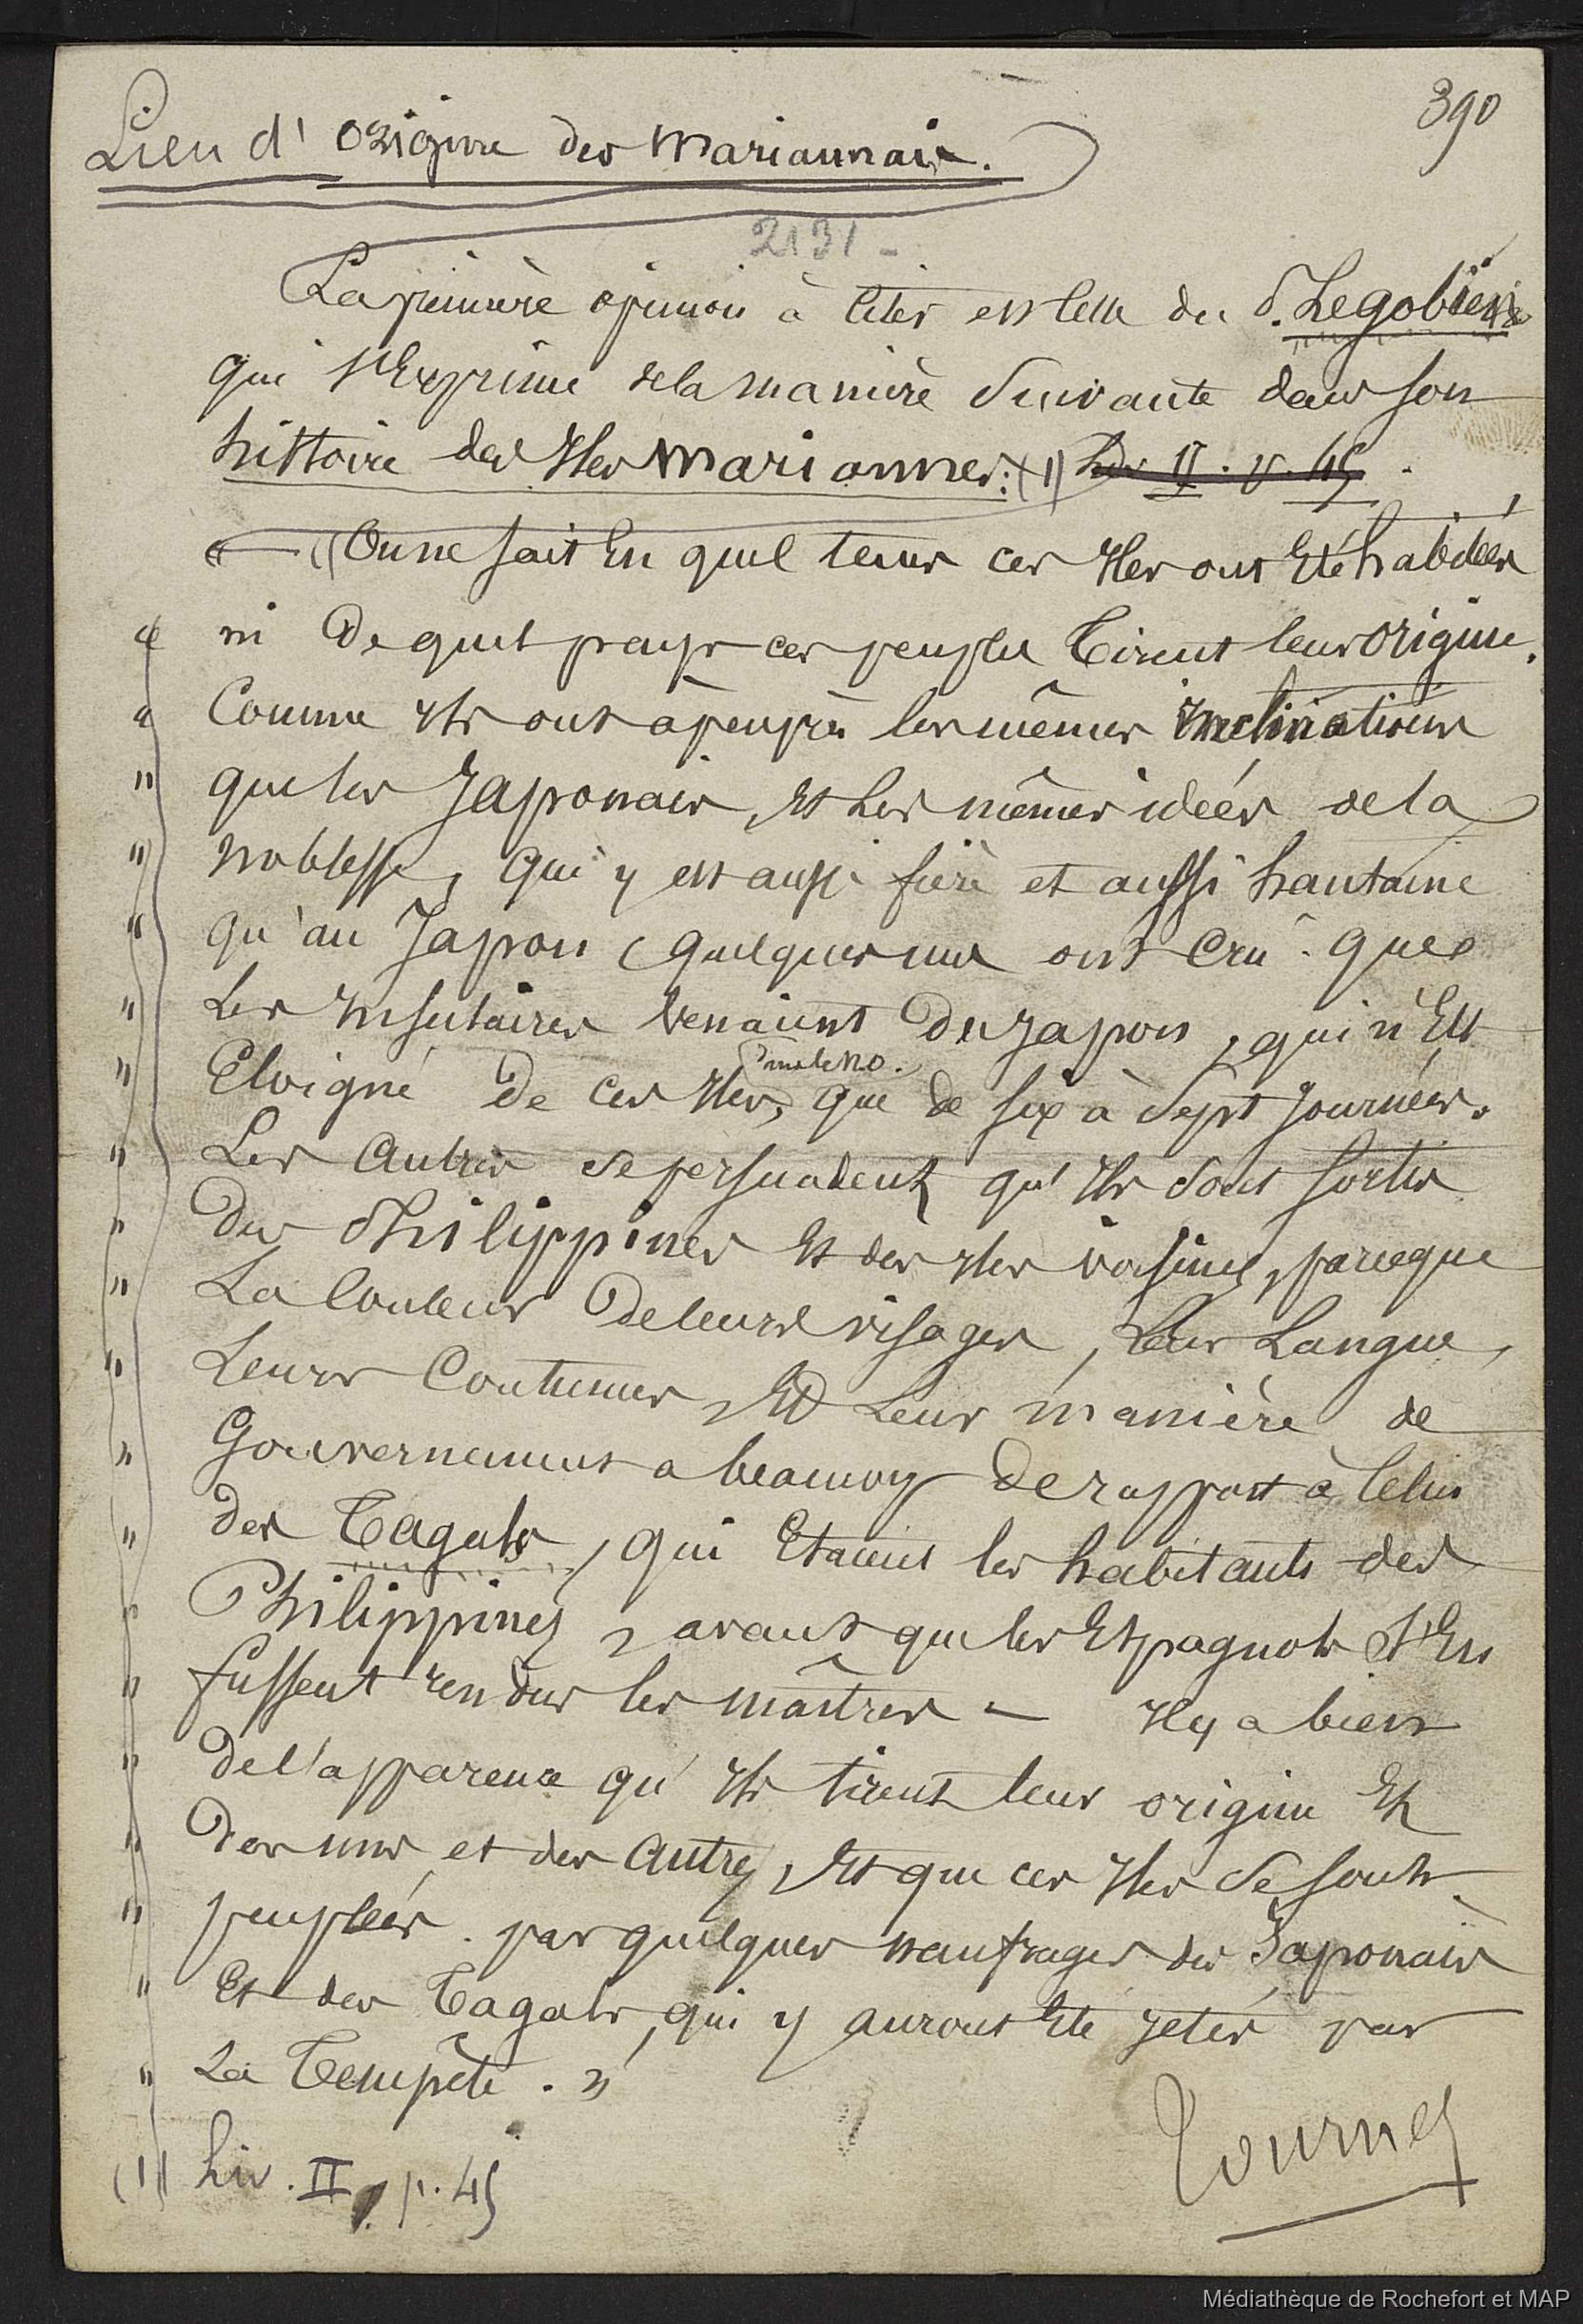 390
Lieu d'origine des Mariannais.
2131 -
La première opinion à citer est celle du P. Legobien
qui s'exprime de la manière suivante dans son
histoire des Iles Mariannes: (1) Liv II. p. 45.
« On ne sait en quel tems ces Iles ont été habitées
" ni de quel pays ces peuples tirent leur origine.
" Comme ils ont à peu près les mêmes inclinations
" que les Japonais, et les mêmes idées de la
" noblesse, qui y est aussi fière et aussi hautaine
" qu'au Japon, quelques uns ont cru que
" les Insulaires venaient du Japon, qui n'est
" Eloigné de ces Iles, que de six à sept journées.
" Les autres se persuadent qu'ils sont sortis
" des Philippines et des Iles voisines, parceque
" la couleur de leurs visages, leur Langue,
" leurs Coutumes, et leur manière de
" Gouvernement a beaucoup de rapport à celui
" des Tagals, qui étaient les habitants des
" Philippines, avant que les Espagnols s'en
" fussent rendus les maîtres - Il y a bien
" de l'apparence qu'ils tirent leur origine et
" des uns et des autres, et que ces Iles se sont
" peuplées par quelques naufrages des Japonais
" et des Tagals, qui y auront été jetés par
" la Tempête. »
(1) Liv. II, p. 45
Tournez
Médiathèque de Rochefort et MAP